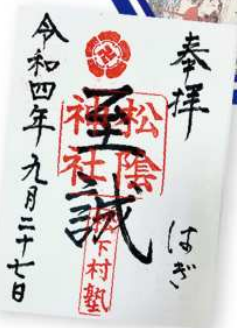 奉拝
はぎ
至誠
松陰
神社
松下村塾
令和四年九月二十七日